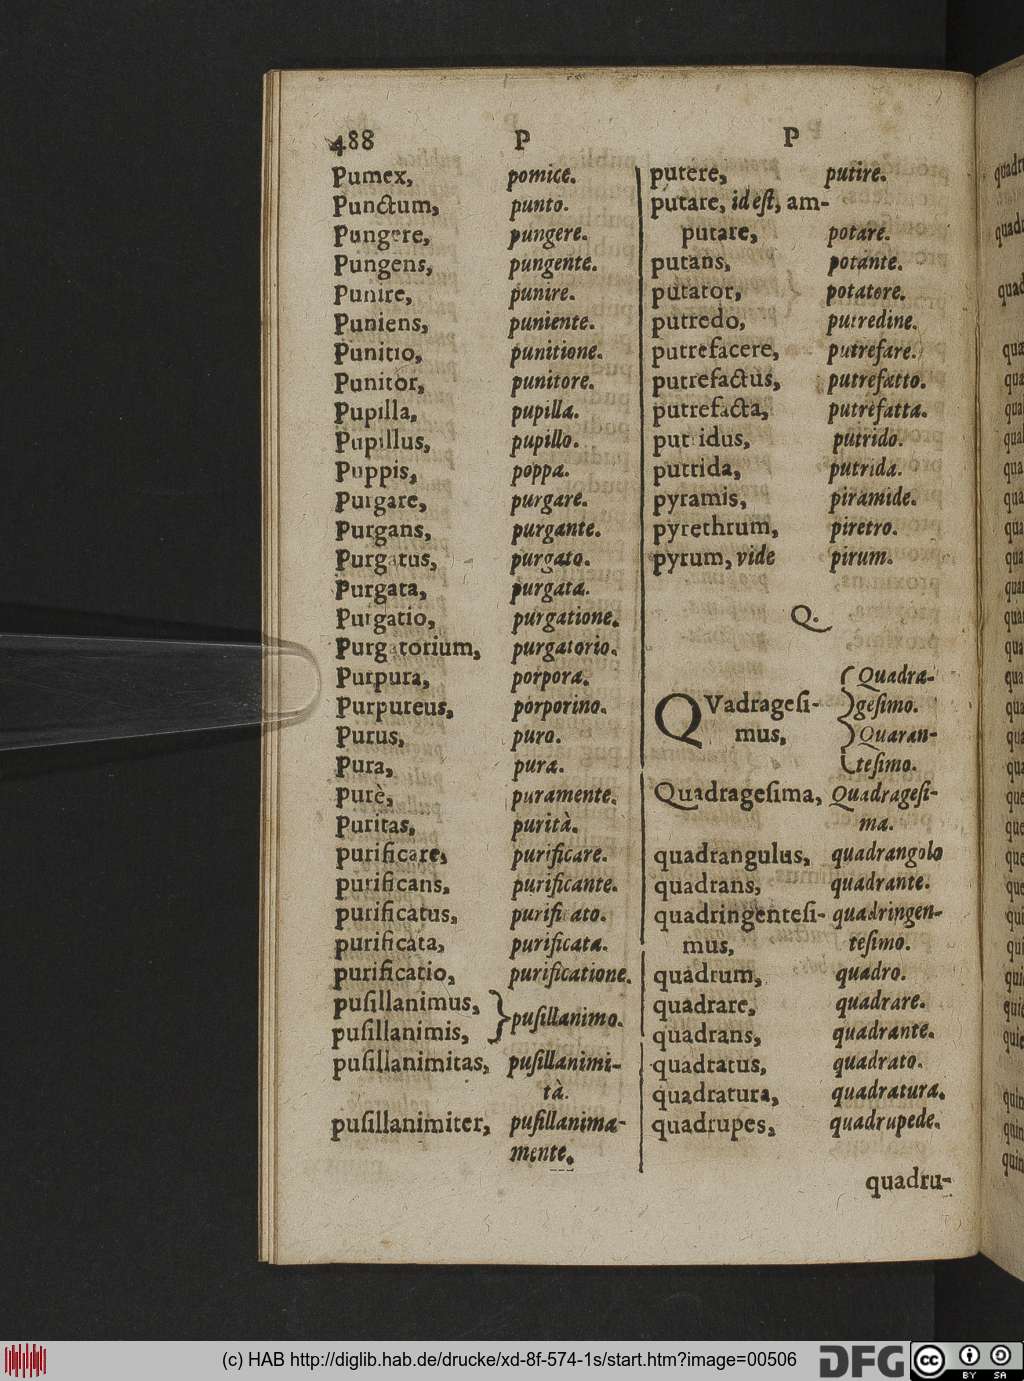 488 P P
Pumex, pomice.
Punctum, punto.
Pungere, pungere.
Pungens, pungente.
Punire, punire.
Puniens, puniente.
Punitio, punitione.
Punitor, punitore.
Pupilla, pupilla.
Pupillus, pupillo.
Puppis, poppa.
Purgare, purgare.
Purgans, purgante.
Purgatus, purgato.
Purgata, purgata.
Purgatio, purgatione.
Purgatorium, purgatorio.
Purpura, porpora.
Purpureus, porporino.
Purus, puro.
Pura, pura.
Purè, puramente.
Puritas, purità.
purificare, purificare.
purificans, purificante.
purificatus, purificato.
purificata, purificata.
purificatio, purificatione.
puſillanimus,
puſillanimis, } puſillanimo.
puſillanimitas, puſillanimi-
tà.
puſillanimiter, puſillanima-
mente.
putere, putire.
putare, id eſt, am-
putare, potare.
putans, potante.
putator, potatore.
putredo, putredine.
putrefacere, putrefare.
putrefactus, putrefatto.
putrefacta, putrefatta.
putridus, putrido.
putrida, putrida.
pyramis, piramide.
pyrethrum, piretro.
pyrum, vide pirum.
Q.
QVadrageſi-
mus,
{ Quadra-
geſimo.
Quaran-
teſimo.
Quadrageſima, Quadrageſi-
ma.
quadrangulus, quadrangolo
quadrans, quadrante.
quadringenteſi- quadringen-
mus, teſimo.
quadrum, quadro.
quadrare, quadrare.
quadrans, quadrante.
quadratus, quadrato.
quadratura, quadratura.
quadrupes, quadrupede.
quadru-
(c) HAB http://diglib.hab.de/drucke/xd-8f-574-1s/start.htm?image=00506
DFG
cc BY SA